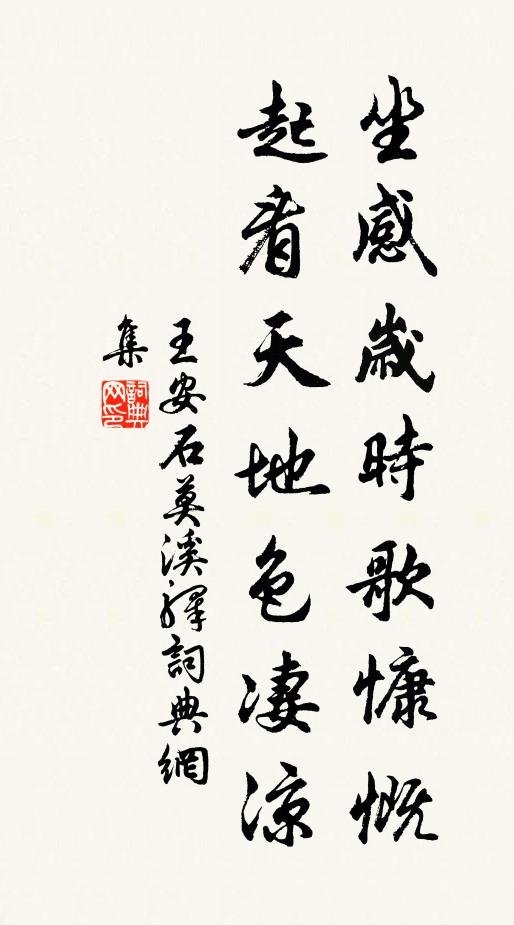 坐感歲時歌慷慨
起看天地色凄涼
王安石莫溪驛詞典網
集
詞典
网印